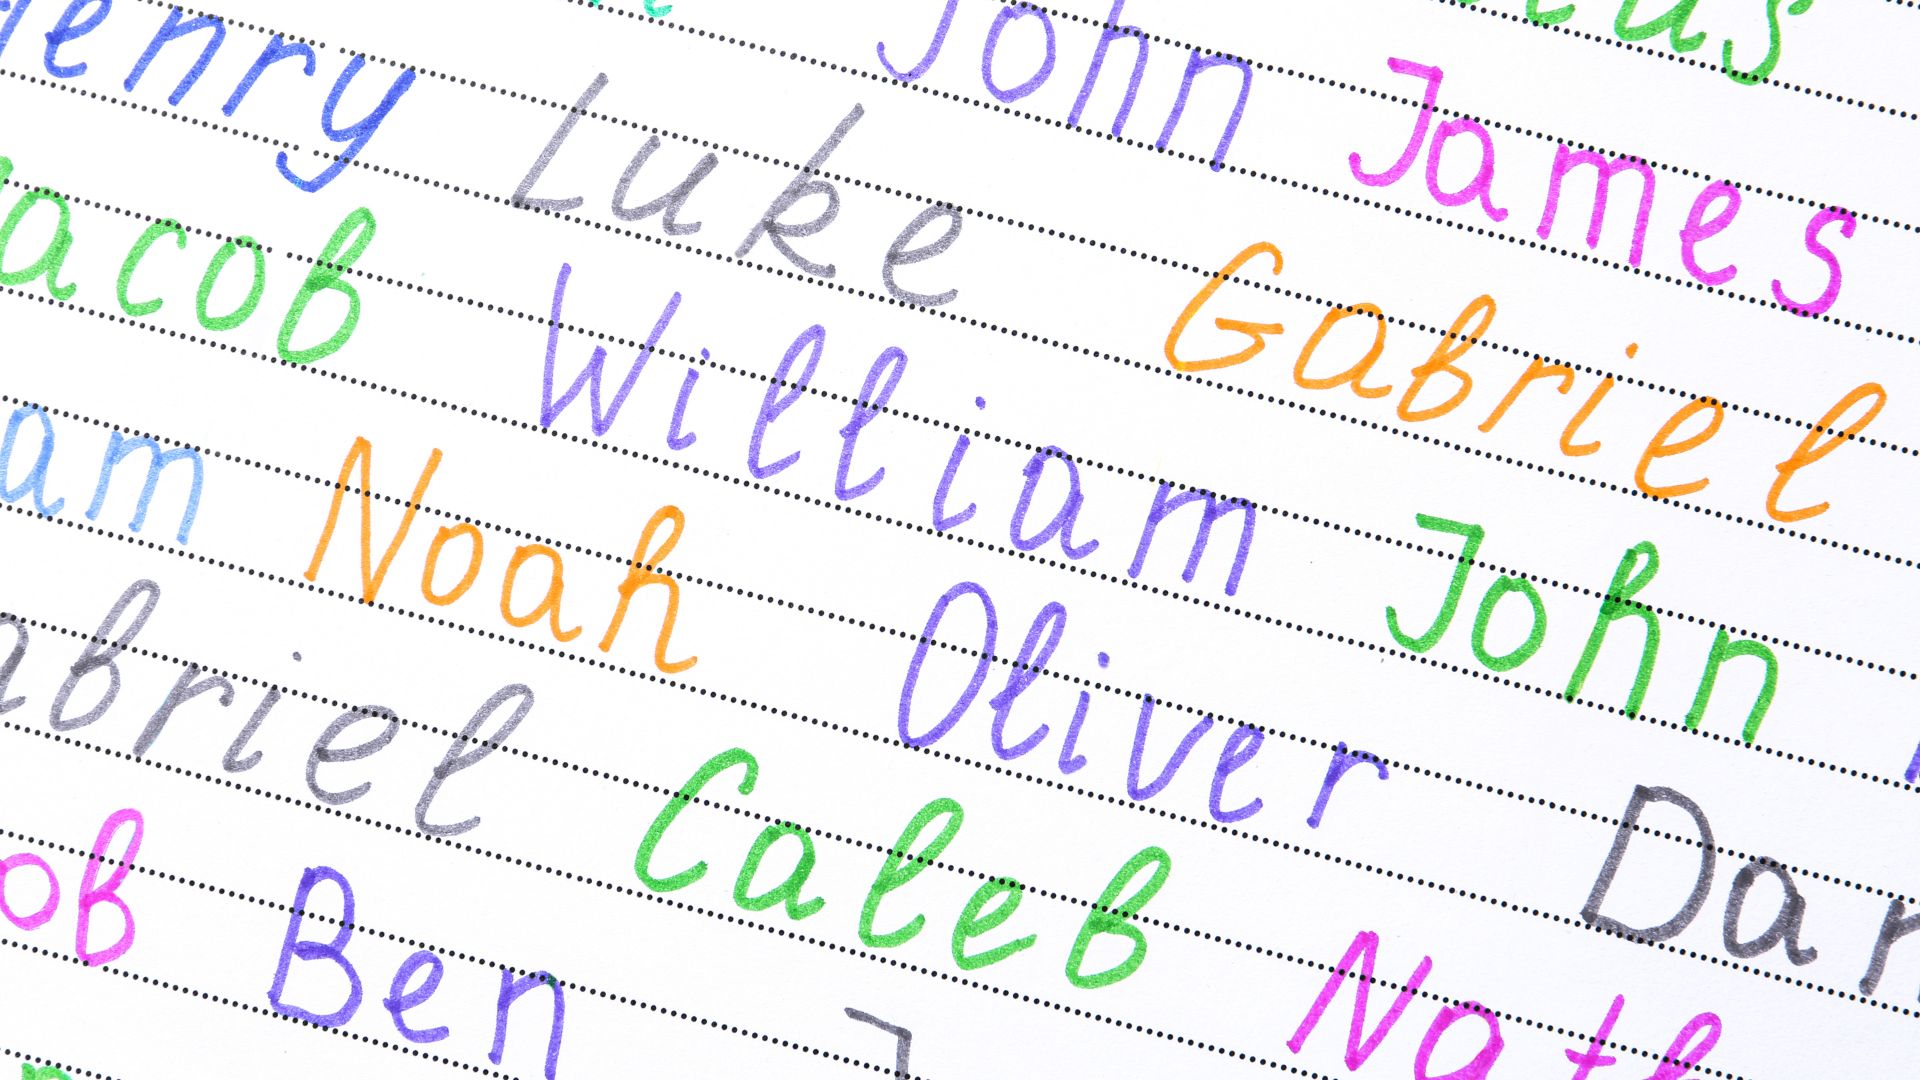 us
John James
Henry Luke Gabriel
acob William John
am Noah Oliver Dar
abriel Caleb Nath
ob Ben J